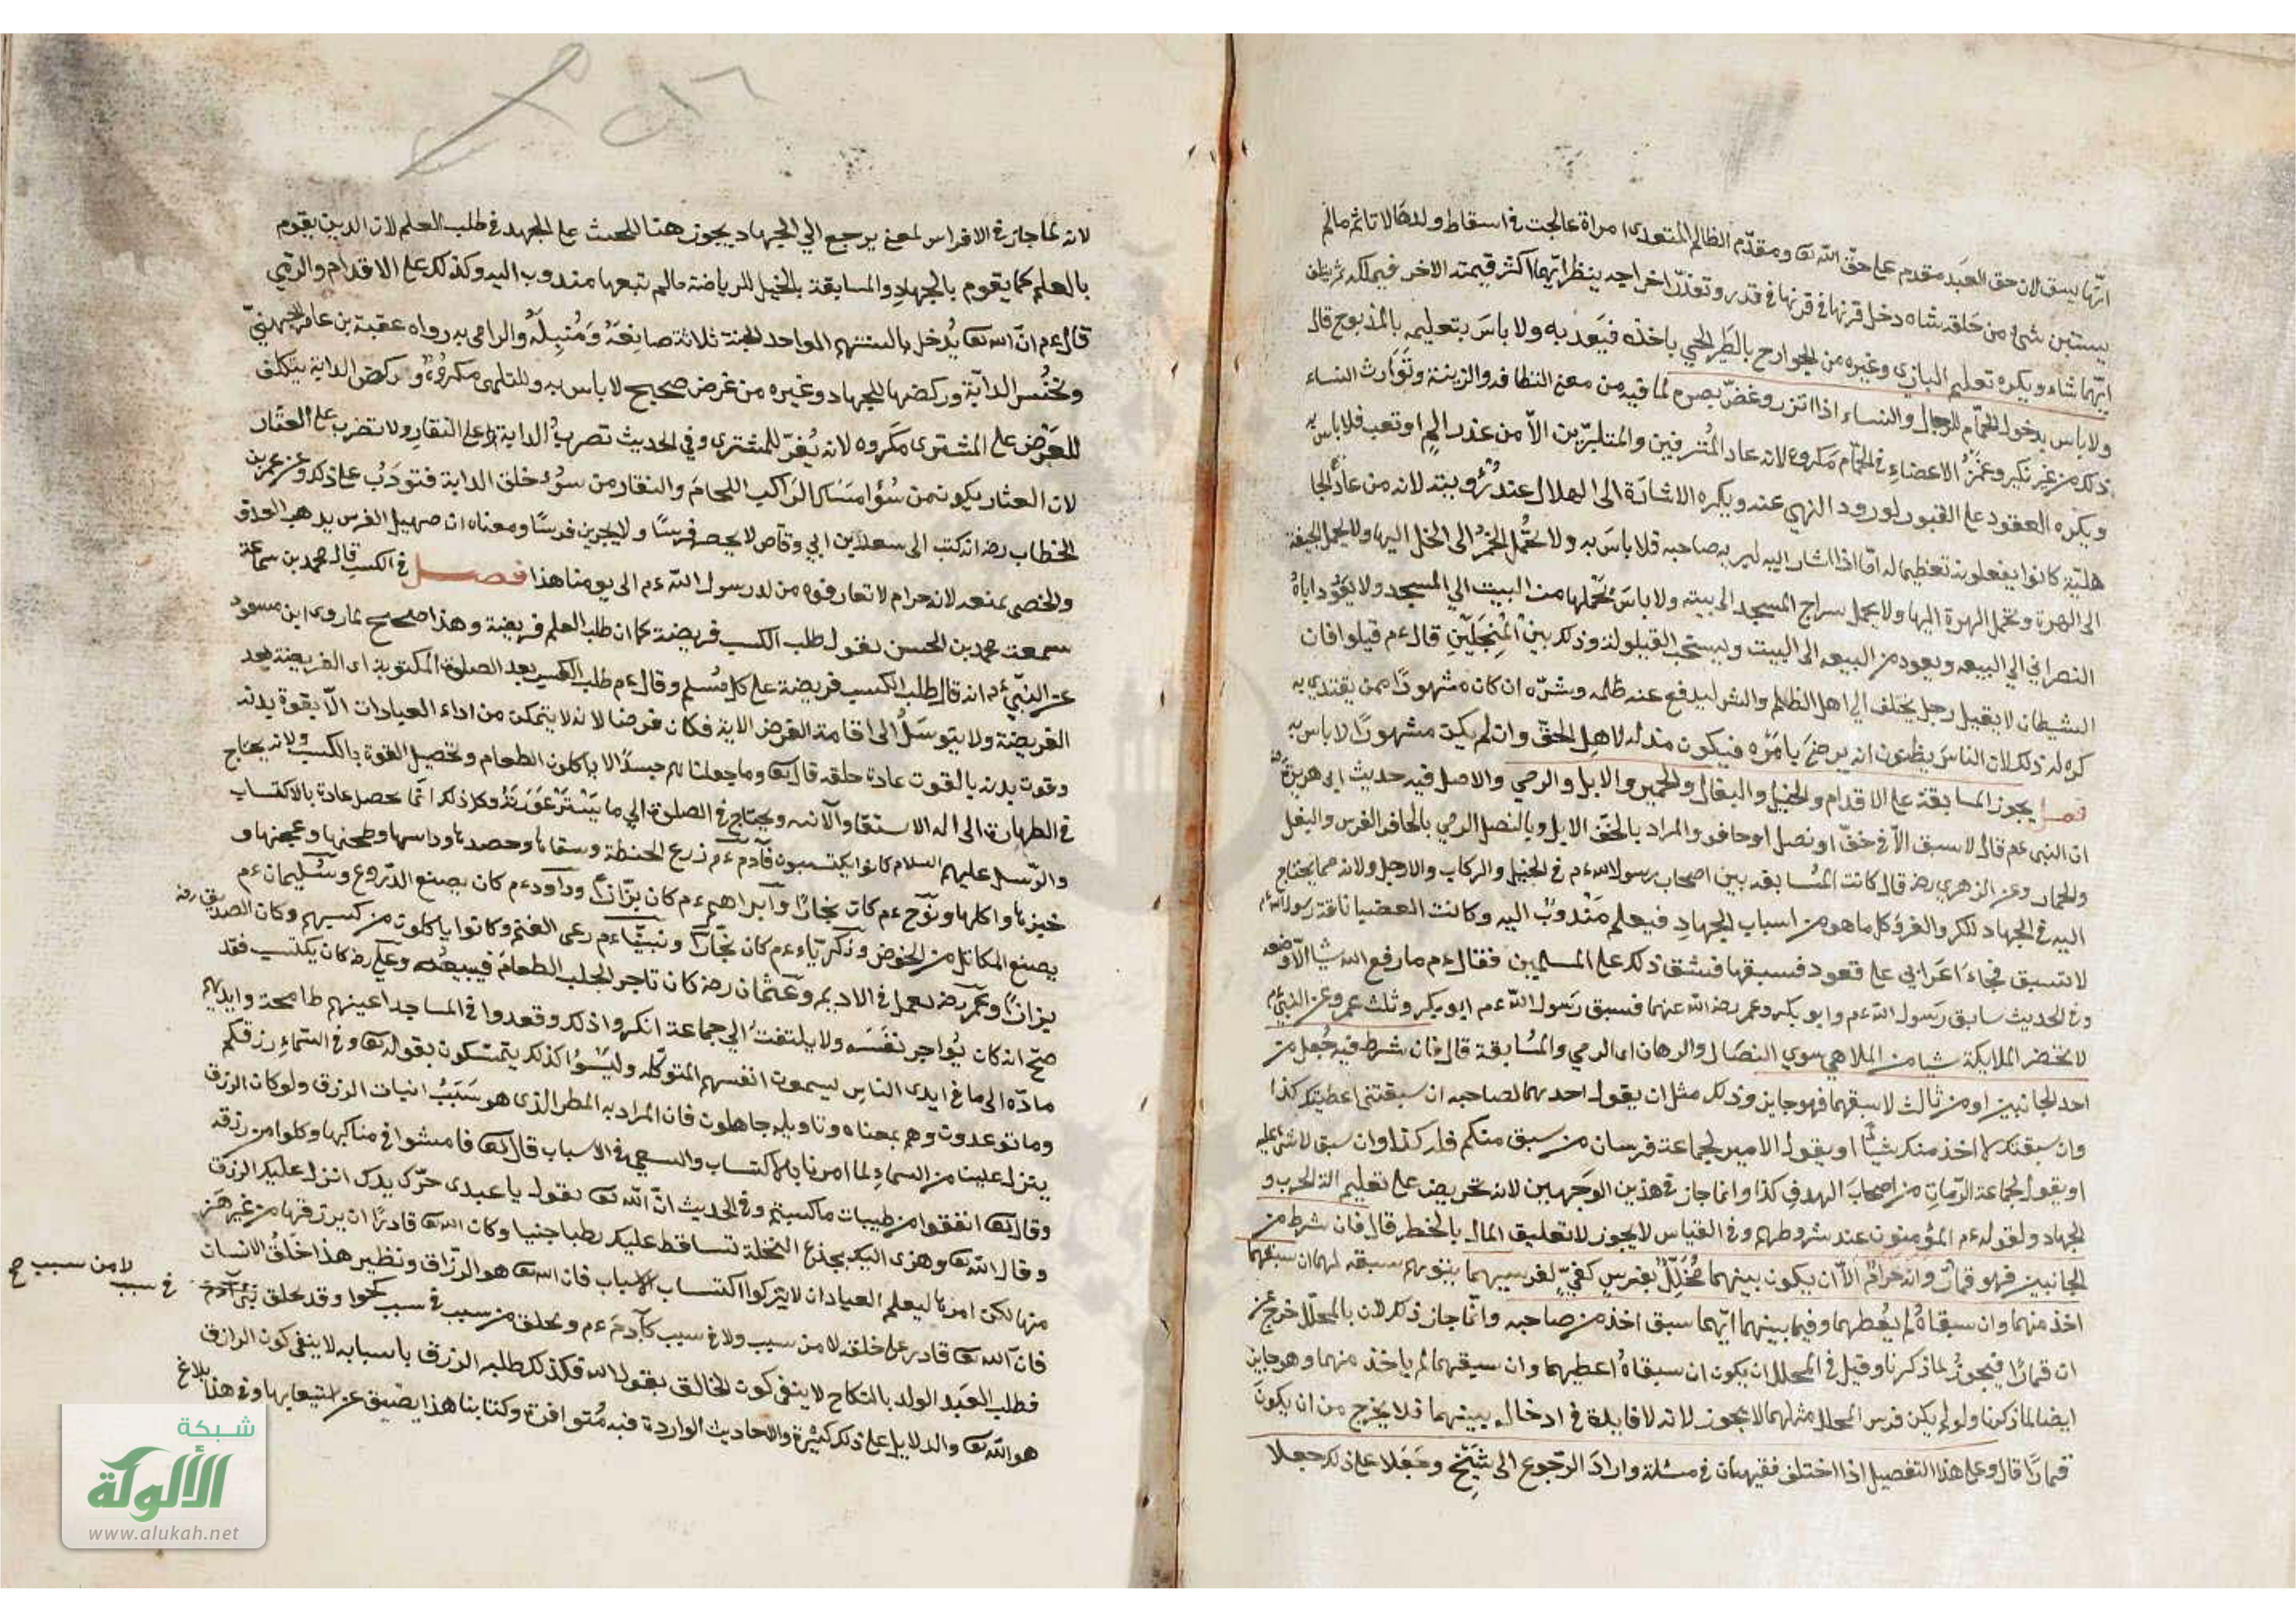 ايّها يسق لان حق العبد مقدم على حقّ الله تعا ومقدّم الظالم المتعدى امراة عالجت فى اسقاط ولدها لا تاثم مالم
يستبن شئ من خلقه شاه دخل قرنها فى قدر وتعذّر اخراجه ينظر ايّهما اكثر قيمته الاخر فيملكه
ايّهما شاء ويكره تعليم البازى وغيره من الجوارح بالطير الحي ياخذه فيعد به ولا باس بتعليمه بالمذبوح قال
ولا باس بدخول الحمّام للرجال والنساء اذا اتزر وغضّ بصره لما فيه من معنى النظافه والزينة وتوارث النساء
ذلك من غير نكير وغمز الاعضاء فى الحمّام مكروه لانه عاد المترفين والمتكبّرين الاّ من عذر الم او تعب فلا باس به
ويكره القعود على القبور لورود النهي عنه ويكره الاشارة الى الهلال عند رؤيته لانه من عادة الجا
هليّه كانوا يفعلونه تعظيما له امّا اذا اشار اليه ليريه صاحبه فلا باس به ولا تحمل الخمر الى الخل اليها ولا يحمل الجيفة
الى الهرة وتحمل الهرة اليها ولا يحمل سراج المسجد الى بيته ولا باس بحملها من البيت الي المسجد ولا يقود اباه
النصراني الي البيعه ويعود من البيعه الى البيت ويستحب القيلولة وذلك بين المنجلين قال ءم قيلوا فان
الشيطان لا يقيل رجل يختلف الي اهل الظلم والشر ليدفع عنه ظلمه وشرّه ان كان مشهورًا ممن يقتدي به
كره له ذلك لان الناس يظنون انه يرضى بامره فيكون مذله لاهل الحقّ وان لم يكن مشهورًا لا باس به
فصل يجوز المسابقة على الاقدام والخيل والبغال والحمير والابل والرمي والاصل فيه حديث ابى هريرة رضه
ان النبي ءم قال لا سبق الاّ فى خفّ او نصل او حافر والمراد بالخف الابل وبالنصل الرمي بالحافر الفرس والبغل
والحمار وعن الزهري رضه قال كانت المسابقه بين اصحاب رسول الله ءم فى الخيل والركاب والارجل ولانه مما يحتاج
اليه فى الجهاد للكر والفر وكل ما هو من اسباب الجهاد فيعلم مندوب اليه وكانت العضبا ناقة رسول الله ءم
لا تسبق فجاء اعرابى على قعود فسبقها فشق ذلك على المسلمين فقال ءم ما رفع الله شيا الاّ وضعه
وفى الحديث سابق رسول الله ءم وابو بكر وعمر رضى الله عنهما فسبق رسول الله ءم ابو بكر وثلث عمر وعن النبي ءم
لا تحضر الملايكة شيا من الملاهي سوي النضال والرهان اى الرمي والمسابقة قال فان شرط فيه جعل من
احد الجانبين او من ثالث لاسبقهما فهو جايز وذلك مثل ان يقول احدهما لصاحبه ان سبقتنى اعطيتك كذا
وان سبقتك لم اخذ منك شيئًا او يقول الامير لجماعة فرسان من سبق منكم فله كذا وان سبق لا شئ عليه
او يقول لجماعة الرّمات من اصاب الهدف كذا وانما جاز فى هذين الوجهين لانه تحريض على تعليم الة الحرب و
الجهاد ولقوله ءم المؤمنون عند شروطهم وفى القياس لا يجوز لانه تعليق المال بالخطر قال فان شرط من
الجانبين فهو قمار وانه حرام الاّ ان يكون بينهما محلّل بفرس كفىّ لفرسيهما يتوهم سبقه لهما ان سبقهما
اخذ منهما وان سبقاه لم يعطهما وفيما بينهما ايّهما سبق اخذ من صاحبه وانّما جاز ذلك لان بالمحلّل خرج عن
ان قمارًا فيجوز لما ذكرنا وقيل فى المحلل ان يكون ان سبقاه اعطيهما وان سبقهما لم ياخذ منهما وهو جايز
ايضا لما ذكرنا ولو لم يكن فرس المحلل مثلهما لا يجوز لانه لا فايدة فى ادخاله بينهما فلا يخرج من ان يكون
قمارًا قال وعلى هذا التفصيل اذا اختلف فقيهان فى مسئلة وارادا الرّجوع الى شيخ وجعلا على ذلك جعلا
لانه لما جاز فى الافراس لمعنى يرجع الي الجهاد يجوز هنا للحث على الجهد فى طلب العلم لان الدين يقوم
بالعلم كما يقوم بالجهاد والمسابقة بالخيل للرياضة مالم يتبعها مندوب اليه وكذلك على الاقدام والرمي
قال ءم انّ الله تعا يُدخل بالسهم الواحد الجنة ثلاثة صانعَهُ وَمُنبِلَهُ والرامى به رواه عقبة بن عامر الجهنيّ
ونخس الدابّة وركضها للجهاد وغيره من غرض صحيح لا باس به وللتلهى مكروه وركض الدابة بتكلف
للعرض على المشترى مكروه لانه يُغرّ للمشترى وفى الحديث تضرب الدابة على النفار ولا تضرب على العثار
لان العثار يكون من سؤ امساك الراكب اللجام والنفار من سوء خلق الدابة فتودب على ذلك وعن عمر بن
الخطاب رضه انه كتب الى سعد بن ابي وقّاص لا يخص فرسًا ولا يجرين فرسًا ومعناه ان صهيل الفرس يدهب العدوّ
والخصى يمنعه لا انه حرام لا تعارفوه من لدن رسول الله ءم الى يومنا هذا فصل فى الكسب قال محمد بن سماعة
سمعت محمد بن الحسن يقول طلب الكسب فريضة كما ان طلب العلم فريضة وهذا صحيح لما روى ابن مسعود
عن النّبي ءم انه قال طلب الكسب فريضة على كل مُسلم وقال ءم طلب الكسب بعد الصلوة المكتوبة اى الفريضة بعد
الفريضة ولا يتوسّل الى اقامة الفرض الا به فكان فرضا لانه لا يتمكن من اداء العبادات الاّ بقوة بدنه
وقوت بدنه بالقوت عادة خلقه قال تعا وما جعلناهم جسدًا لا ياكلون الطعام وتحصيل القوة بالكسب ولانه يحتاج
فى الطهارة الى اله الاستقاء والآنيه ويحتاج فى الصلوة الي ما يستر عورته وكل ذلك انّما يحصل عادة بالاكتساب
والرّسل عليهم السلام كانوا يكتسبون فآدم ءم زرع الحنطة وسقاها وحصدها وداسها وطحنها وعجنها و
خبزها واكلها ونوح ءم كان نجارًا وابراهيم ءم كان بزّازًا وداود ءم كان يصنع الدّروع وسليمان ءم
يصنع المكاتل من الخوص وزكريّاء ءم كان نجّارًا ونبيّنا ءم رعى الغنم وكانوا ياكلون من كسبهم وكان الصديق رضه
بزازًا وعمر رضه يعمل فى الاديم وعثمان رضه كان تاجر الجلب الطعام فيبيعه وعلى رضه كان يكتسب فقد
صحّ انه كان يُواجر نفسه ولا يلتفت الي جماعة انكروا ذلك وقعدوا فى المساجد اعينهم طامحة وايديهم
مادّه الى ما فى ايدى الناس ليسمون انفسهم المتوكله وليسُوا كذلك يتمسّكون بقوله تعا وفى السّماء رزقكم
وما توعدون وهم بمعناه وتاويله جاهلون فان المراد به المطر الذى هو سَبَبُ انبات الرزق ولو كان الرزق
ينزل علينا من السماء لما امرنا بالاكتساب والسعى فى الاسباب قال تعا فامشوا فى مناكبها وكلوا من رزقه
وقال تعا انفقوا من طيبات ما كسبتم وفى الحديث انّ الله تعا يقول يا عبدى حرّك يدك انزل عليك الرزق
وقال الله تعا وهزى اليك بجذع النخلة تساقط عليك رطبا جنيا وكان الله تعا قادرًا ان يرزقها من غير هَزّ
منها لكن امرها ليعلم العباد ان لا يتركوا اكتساب الاسباب فان الله تعا هو الرزّاق ونظير هذا خلقُ الانسان
فانّ الله تعا قادر على خلقه لا من سبب ولا فى سبب كآدم ءم ويخلق من سبب فى سبب كحوا وقد يخلق بنى آدم
لا من سبب فى سبب صح
فطلب العبد الولد بالنكاح لا ينفى كون الخالق يقول الله فكذلك طلبه الرزق باسبابه لا ينفى كون الرازق
هو الله تعا والدلايل على ذلك كثيرة والاحاديث الواردة فيه مُتوافرة وكتابنا هذا يضيق عن استيعابها وفى هذا بلاغ
شبكة
الألوكة
www.alukah.net